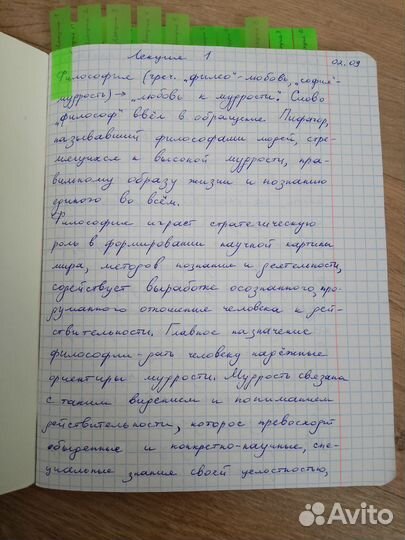 Лекция 1
02.09
Философия (греч. „филео"-любовь, „софия"-
мудрость) → „любовь к мудрости". Слово
„философ" ввёл в обращение Пифагор,
называвший философами людей, стре-
мящихся к высокой мудрости, пра-
вильному образу жизни и познанию
единого во всём.
Философия играет стратегическую
роль в формировании научной картины
мира, методов познания и деятельности,
содействует выработке осознанного, про-
думанного отношения человека к дей-
ствительности. Главное назначение
философии - дать человеку надёжные
ориентиры мудрости. Мудрость связана
с таким видением и пониманием
действительности, которое превосходит
обыденные и конкретно-научные, спе-
циальные знания своей целостностью,
Avito